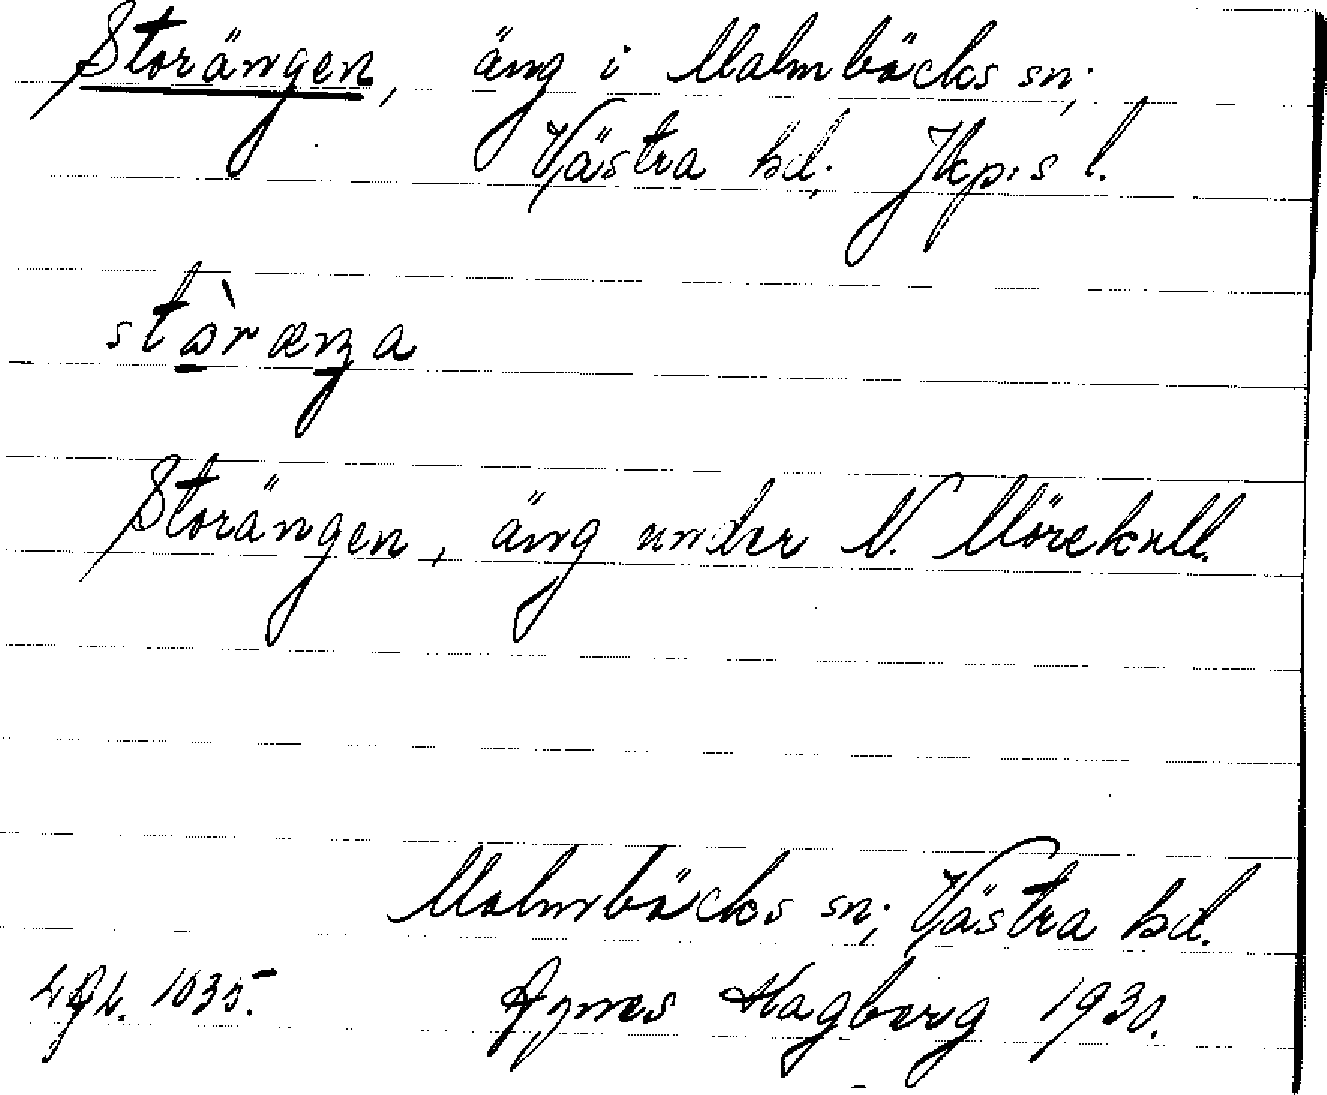 Storängen, äng i Malmbäcks sn;
Västra hd; Jkp:s l.
stòræŋa
Storängen, äng under N. Mörekull.
Malmbäcks sn; Västra hd.
1035.
Agnes Hagberg 1930.